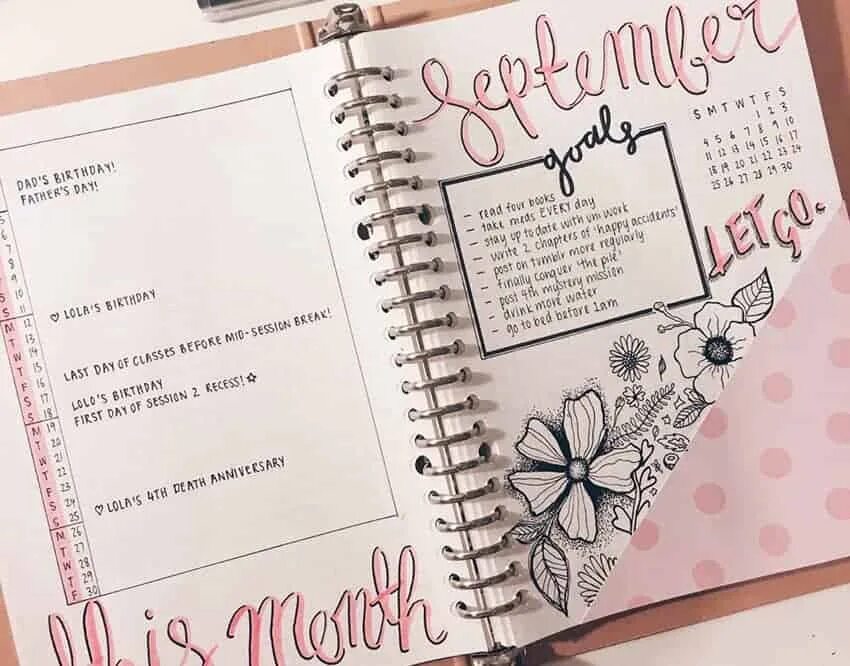 DAD'S BIRTHDAY!
FATHER'S DAY!
6
7
8
9
S 10
S 11
M 12
T 13
W 14
T 15
F 16
S 17
S 18
M 19
T 20
W 21
T 22
F 23
S 24
S 25
M 26
T 27
W 28
T 29
F 30
♡ LOLA'S BIRTHDAY
LAST DAY OF CLASSES BEFORE MID-SESSION BREAK!
LOLO'S BIRTHDAY
FIRST DAY OF SESSION 2 RECESS! ☆
♡ LOLA'S 4TH DEATH ANNIVERSARY
this month
September
goals
- read four books
- take meds EVERY day
- stay up to date with uni work
- write 2 chapters of 'happy accidents'
- post on tumblr more regularly
- finally conquer 'the pile'
- post 4th mystery mission
- drink more water
- go to bed before 1am
S M T W T F S
1 2 3
4 5 6 7 8 9 10
11 12 13 14 15 16 17
18 19 20 21 22 23 24
25 26 27 28 29 30
LET GO.